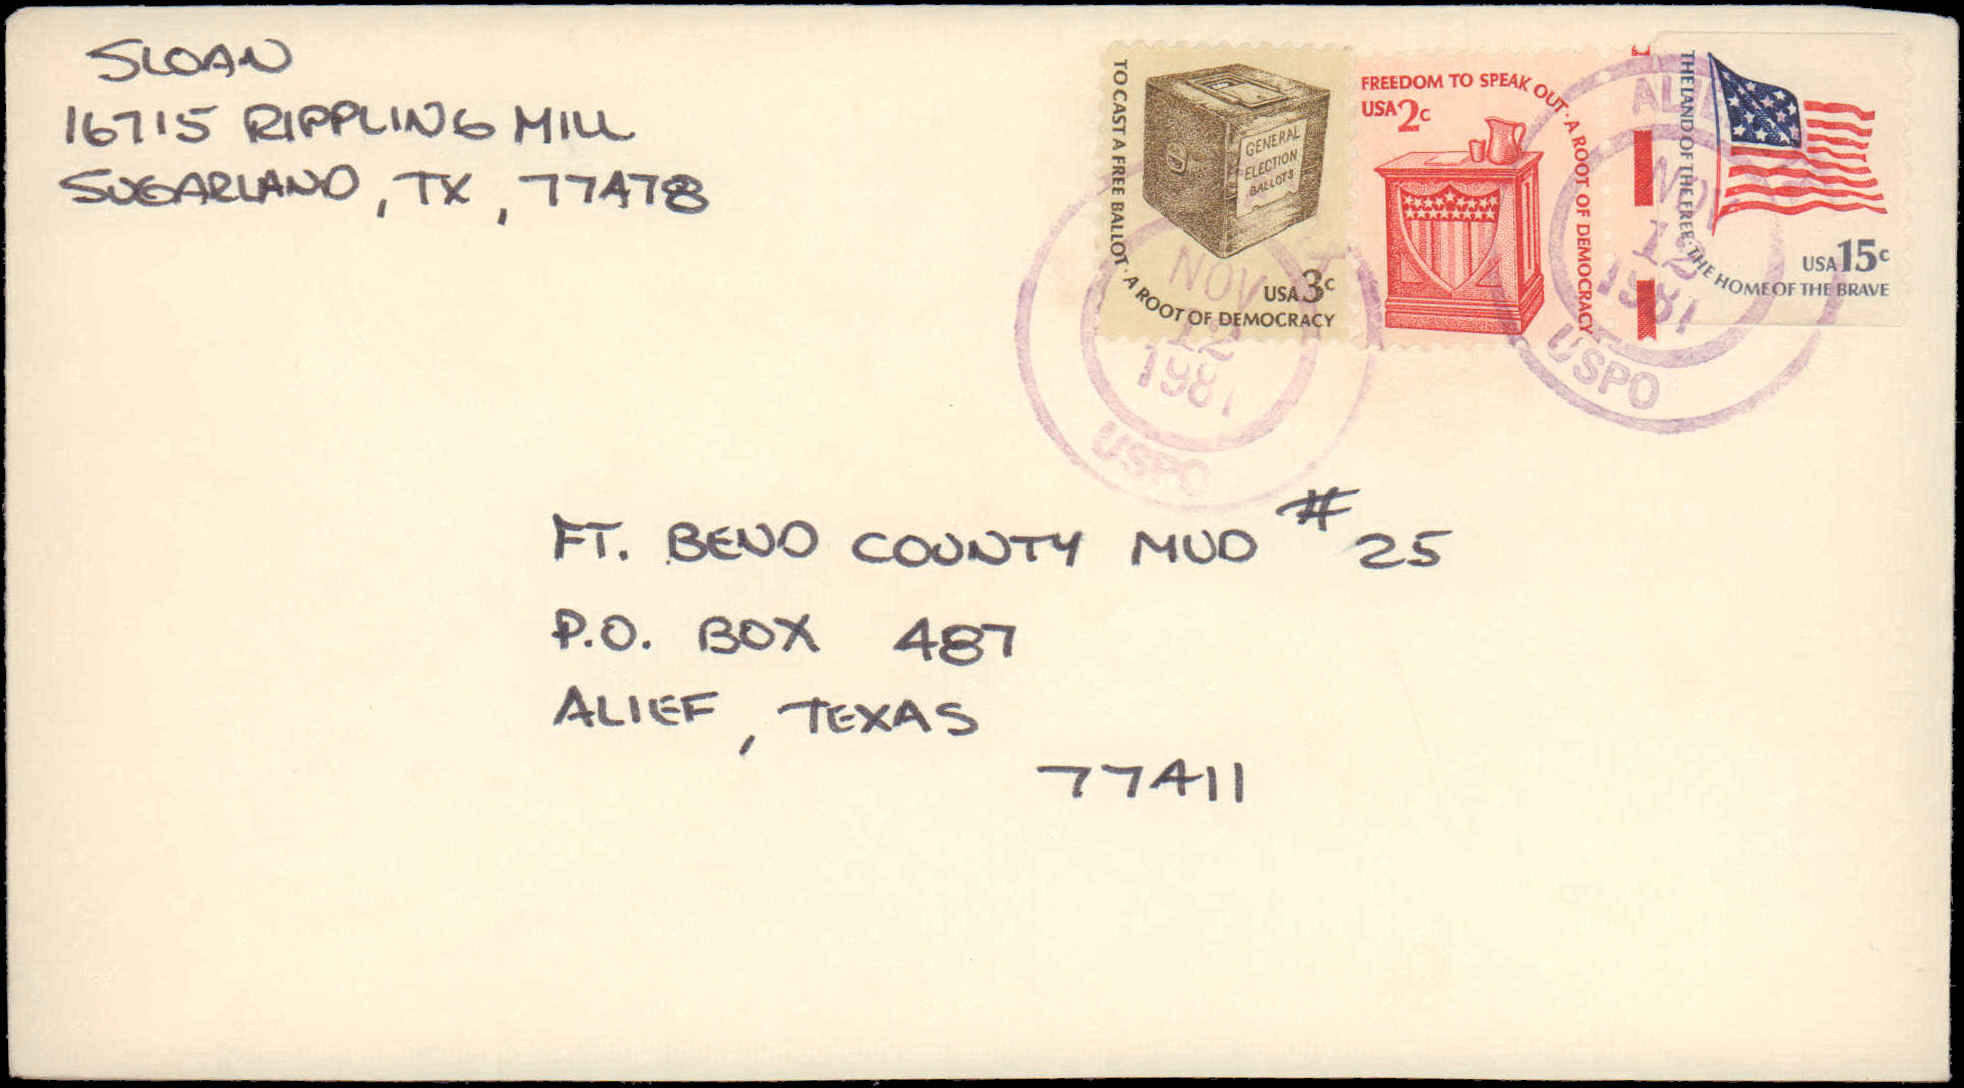 SLOAN
16715 RIPPLING MILL
SUGARLAND, TX, 77478
TO CAST A FREE BALLOT · A ROOT OF DEMOCRACY
GENERAL
ELECTION
BALLOTS
USA 3c
FREEDOM TO SPEAK OUT · A ROOT OF DEMOCRACY
USA 2c
THE LAND OF THE FREE · THE HOME OF THE BRAVE
USA 15c
NOV
12
1981
USPO
NOV
12
1981
USPO
FT. BEND COUNTY MUD # 25
P.O. BOX 487
ALIEF, TEXAS
77411